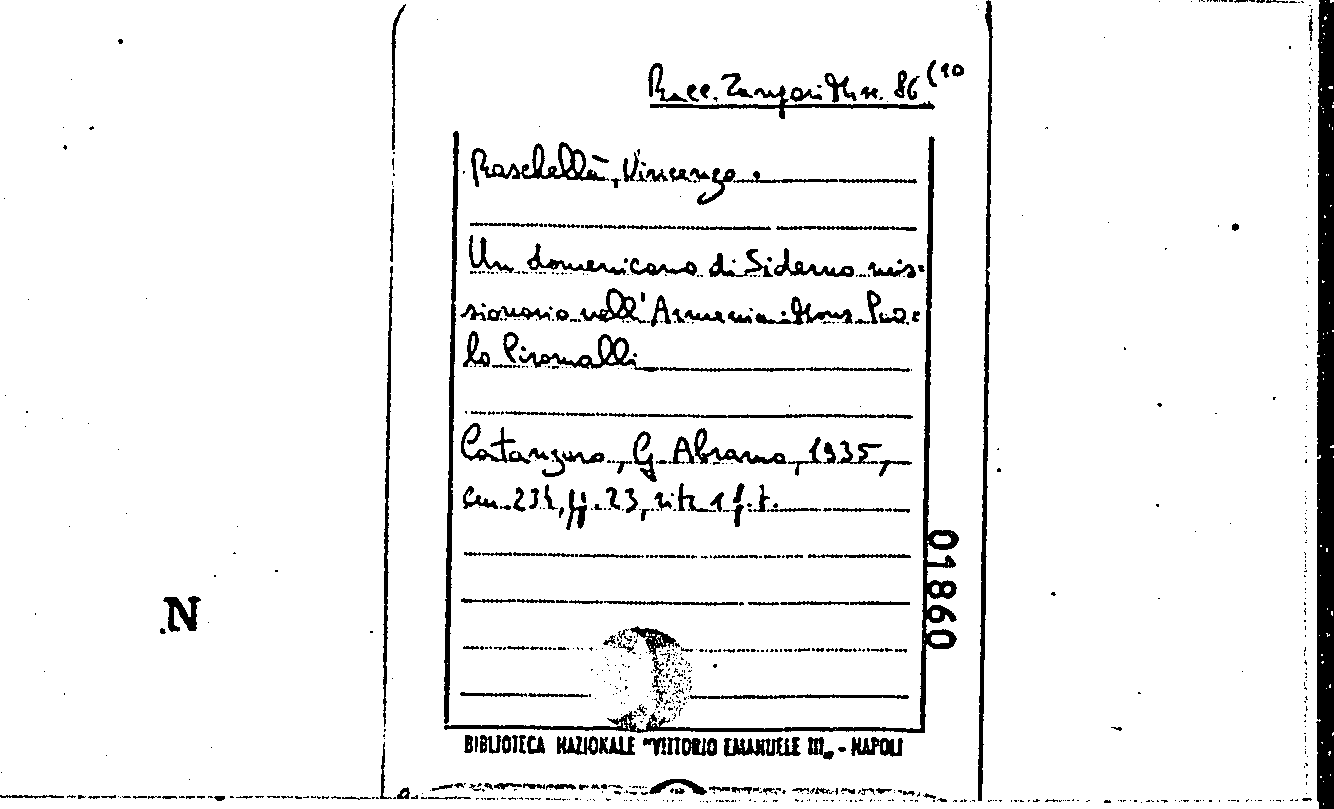 Racc. Zangari Misc. 86 (10
Raschellà, Vincenzo.
Un domenicano di Siderno mis=
sionario nell'Armenia: Mons. Pao=
lo Piromalli
Catanzaro, G. Abramo, 1935,
cm. 23½, pp. 23, ritr. 1 f. t.
01860
N
BIBLIOTECA NAZIONALE "VITTORIO EMANUELE III„ - NAPOLI